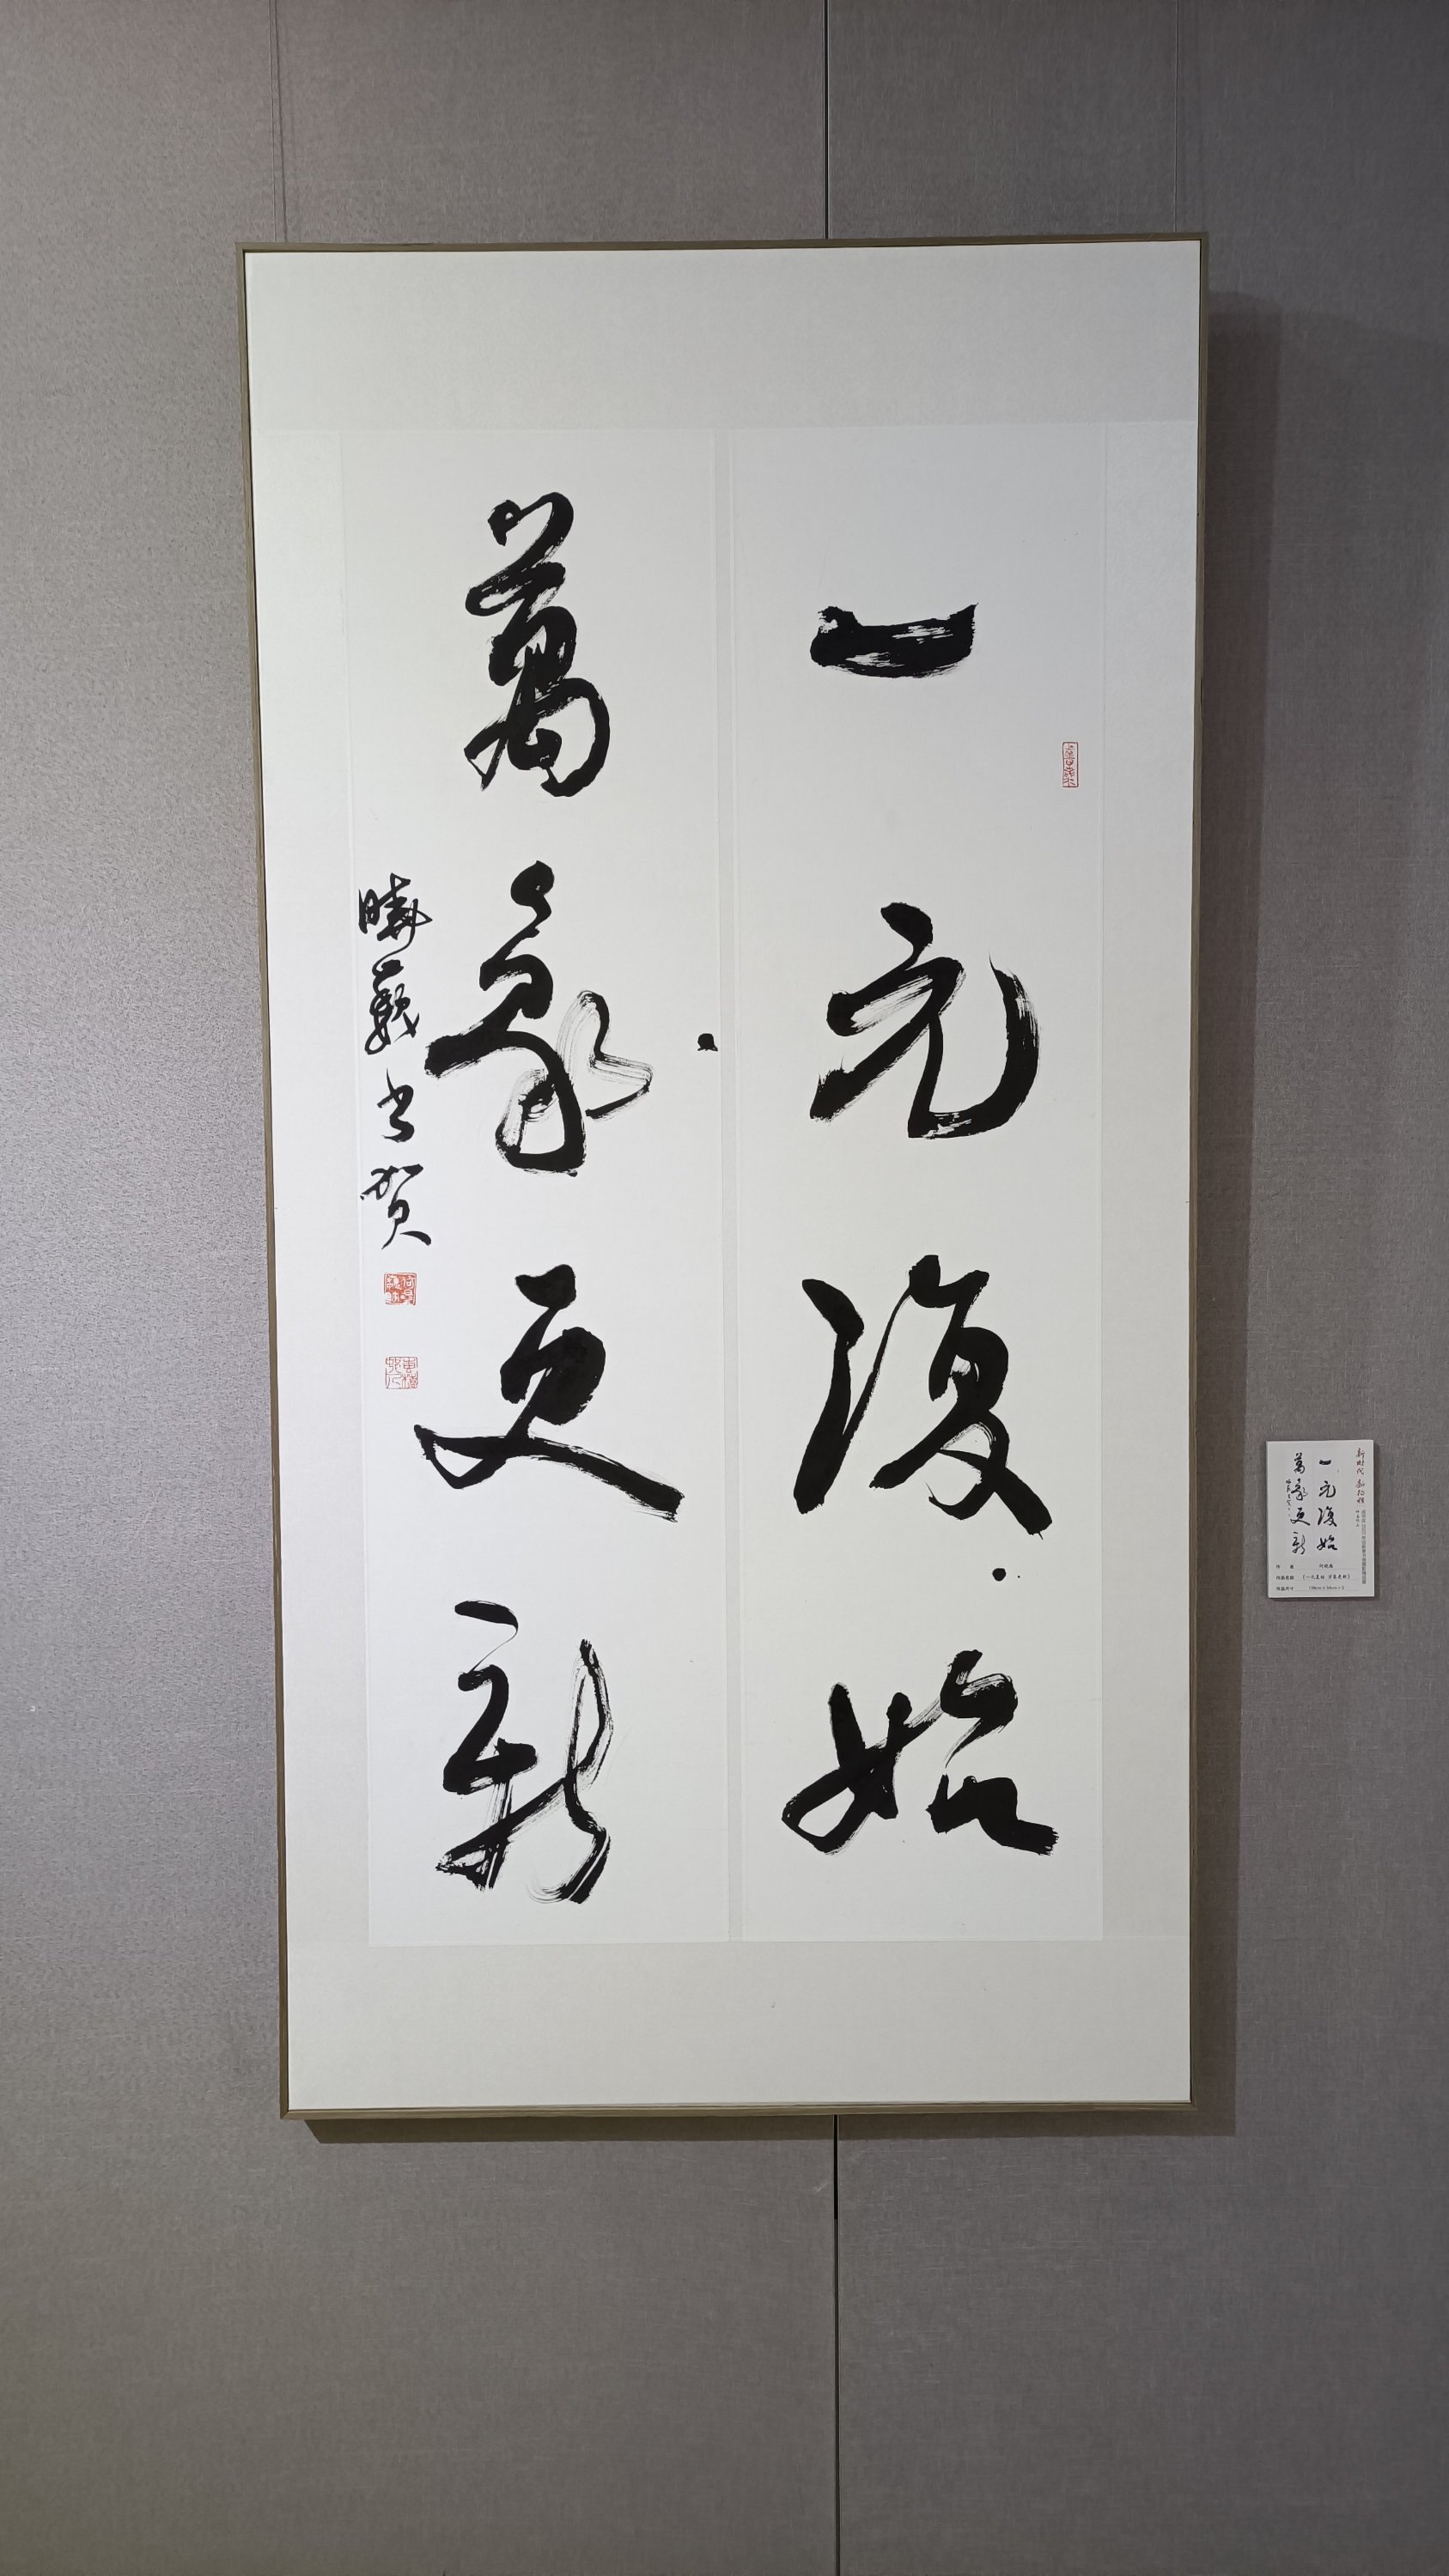 一元復始
萬象更新
曉巍書賀
新时代 新征程
一元復始
萬象更新
作者
作品名称 《一元复始 万象更新》
作品尺寸